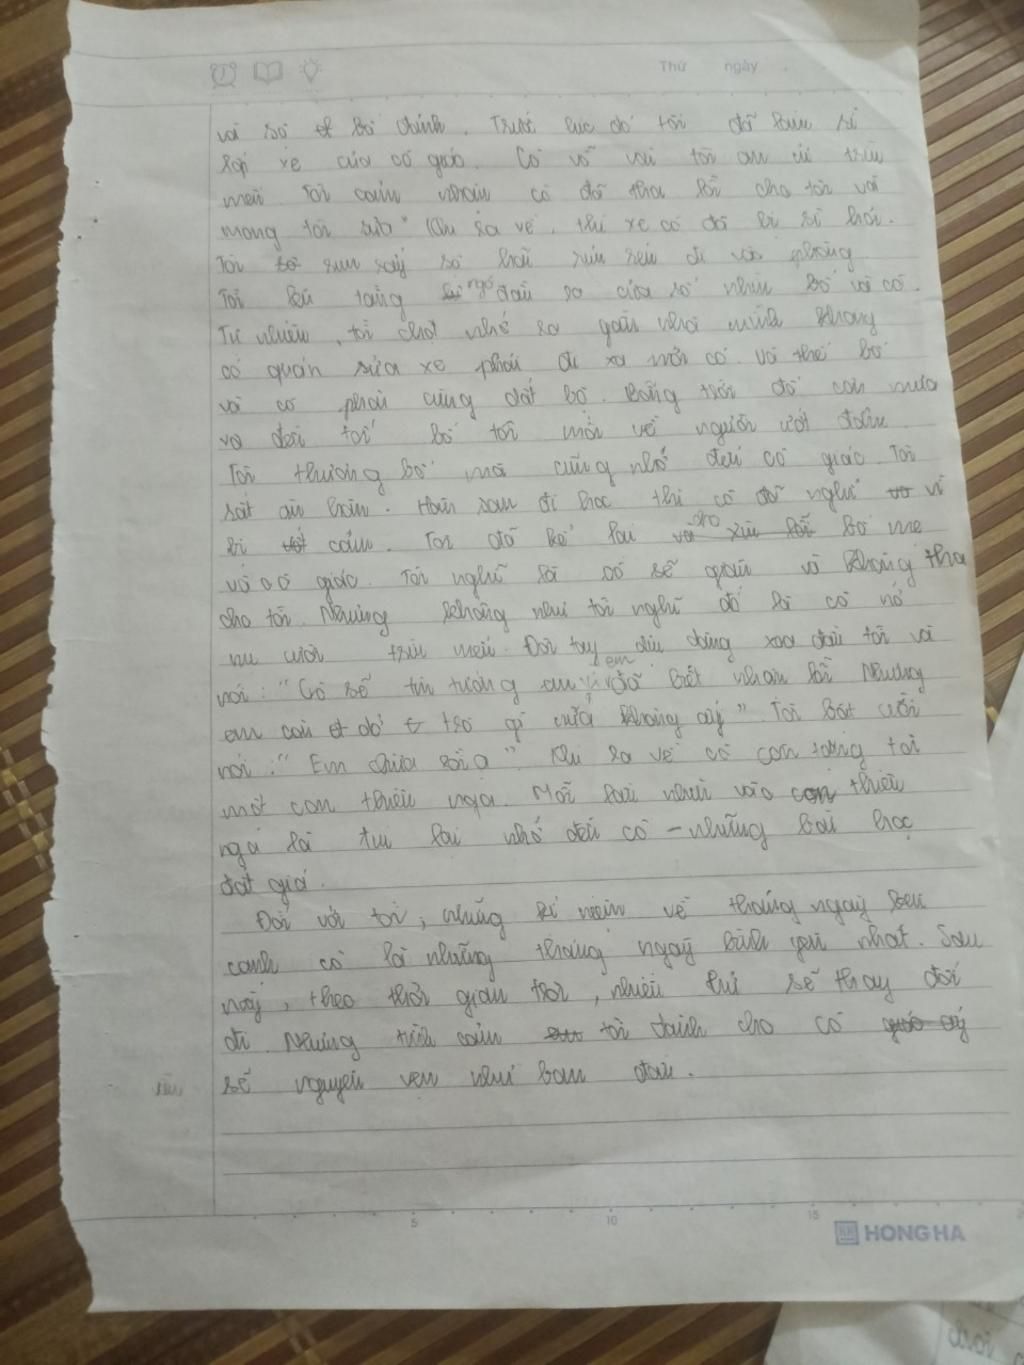 Thứ ngày
và sợ bố đánh. Trước lúc đó tôi đã làm xì
lốp xe của cô giáo. Cô vỗ vai tôi an ủi trìu
mến. Tôi cảm nhận cô đã tha lỗi cho tôi và
mong tôi sửa" Khi ra về, thì xe cô đã bị xì hơi.
Tôi run rẩy sợ hãi rúm rém đi vào phòng.
Tôi lên tầng ngó đầu ra cửa sổ nhìn bố và cô.
Tự nhiên, tôi chợt nhớ ra gần nhà mình không
có quán sửa xe phải đi xa mới có. Vì thế bố
và cô phải cùng dắt bộ. Bỗng trời đổ cơn mưa
và đến tối bố tôi mới về người ướt đẫm.
Tôi thương bố mà cũng nhớ đến cô giáo. Tôi
rất ân hận. Hôm sau đi học thì cô đã nghỉ vì
bị cảm. Tôi đã kể lại cho bố mẹ
và cô giáo. Tôi nghĩ là cô sẽ giận và không tha
cho tôi. Nhưng không như tôi nghĩ đó là cô nở
nụ cười trìu mến. Đôi tay dịu dàng xoa đầu tôi và
nói: "Cô sẽ tin tưởng em vì em đã biết nhận lỗi. Nhưng
em còn dở trò gì nữa không đấy". Tôi bật cười
nói: "Em chừa rồi ạ". Khi ra về cô còn tặng tôi
một con thiên nga. Mỗi lần nhìn vào con thiên
nga là tui lại nhớ đến cô – những bài học
đắt giá.
Đối với tôi, những kỉ niệm về tháng ngày bên
cạnh cô là những tháng ngày bình yên nhất. Sau
này, theo thời gian trôi, nhiều thứ sẽ thay đổi
đi. Nhưng tình cảm tôi dành cho cô
sẽ nguyên vẹn như ban đầu.
5 10 15
HONG HA